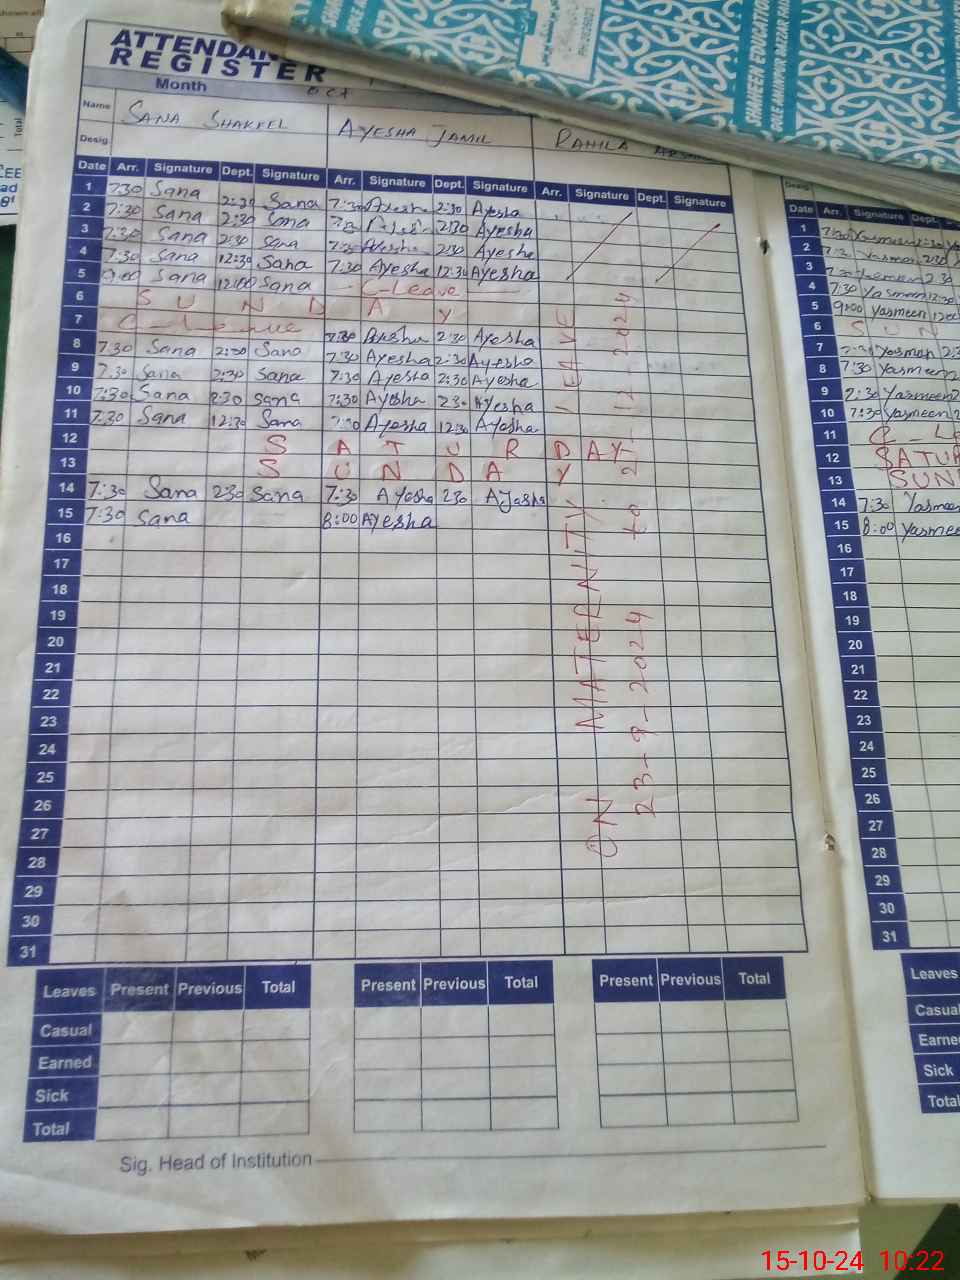 ATTENDAN
REGISTER
Month OCT
Name SANA SHAKEEL AYESHA JAMIL RAHILA
Desig.
Date Arr. Signature Dept. Signature Arr. Signature Dept. Signature Arr. Signature Dept. Signature
1 7:30 Sana 2:30 Sana 7:30 Ayesha 2:30 Ayesha
2 7:30 Sana 2:30 Sana 7:30 Ayesha 2:30 Ayesha
3 7:30 Sana 2:30 Sana 7:30 Ayesha 2:30 Ayesha
4 7:30 Sana 12:30 Sana 7:30 Ayesha 12:30 Ayesha
5 Sana 12:00 Sana C-Leave
6 S U N D A Y
7 C-Leave 7:30 Ayesha 2:30 Ayesha
8 7:30 Sana 2:30 Sana 7:30 Ayesha 2:30 Ayesha
9 7:30 Sana 2:30 Sana 7:30 Ayesha 2:30 Ayesha
10 7:30 Sana 2:30 Sana 7:30 Ayesha 2:30 Ayesha
11 7:30 Sana 12:30 Sana Ayesha 12:30 Ayesha
12 S A T U R D A Y
13 S U N D A Y
14 7:30 Sana 2:30 Sana 7:30 Ayesha 2:30 Ayesha
15 7:30 Sana 8:00 Ayesha
16
17
18
19
20
21
22
23
24
25
26
27
28
29
30
31
ON MATERNITY LEAVE
23-9-2024 to 21-12-2024
Leaves Present Previous Total Present Previous Total Present Previous Total
Casual
Earned
Sick
Total
Sig. Head of Institution
SHAHEEN EDUCATION
GOLE AMINPUR BAZAR
Date Arr. Signature Dept.
1 7:30 Yasmeen 2:30
2 Yasmeen 2:30
3 Yasmeen 2:30
4 7:30 Yasmeen 12:30
5 9:00 Yasmeen 12:00
6 S U N
7 Yasmeen
8 7:30 Yasmeen
9 7:30 Yasmeen
10 7:30 Yasmeen
11 C-Le
12 SATUR
13 SUN
14 7:30 Yasmeen
15 8:00 Yasmee
16
17
18
19
20
21
22
23
24
25
26
27
28
29
30
31
Leaves
Casual
Earne
Sick
Total
15-10-24 10:22